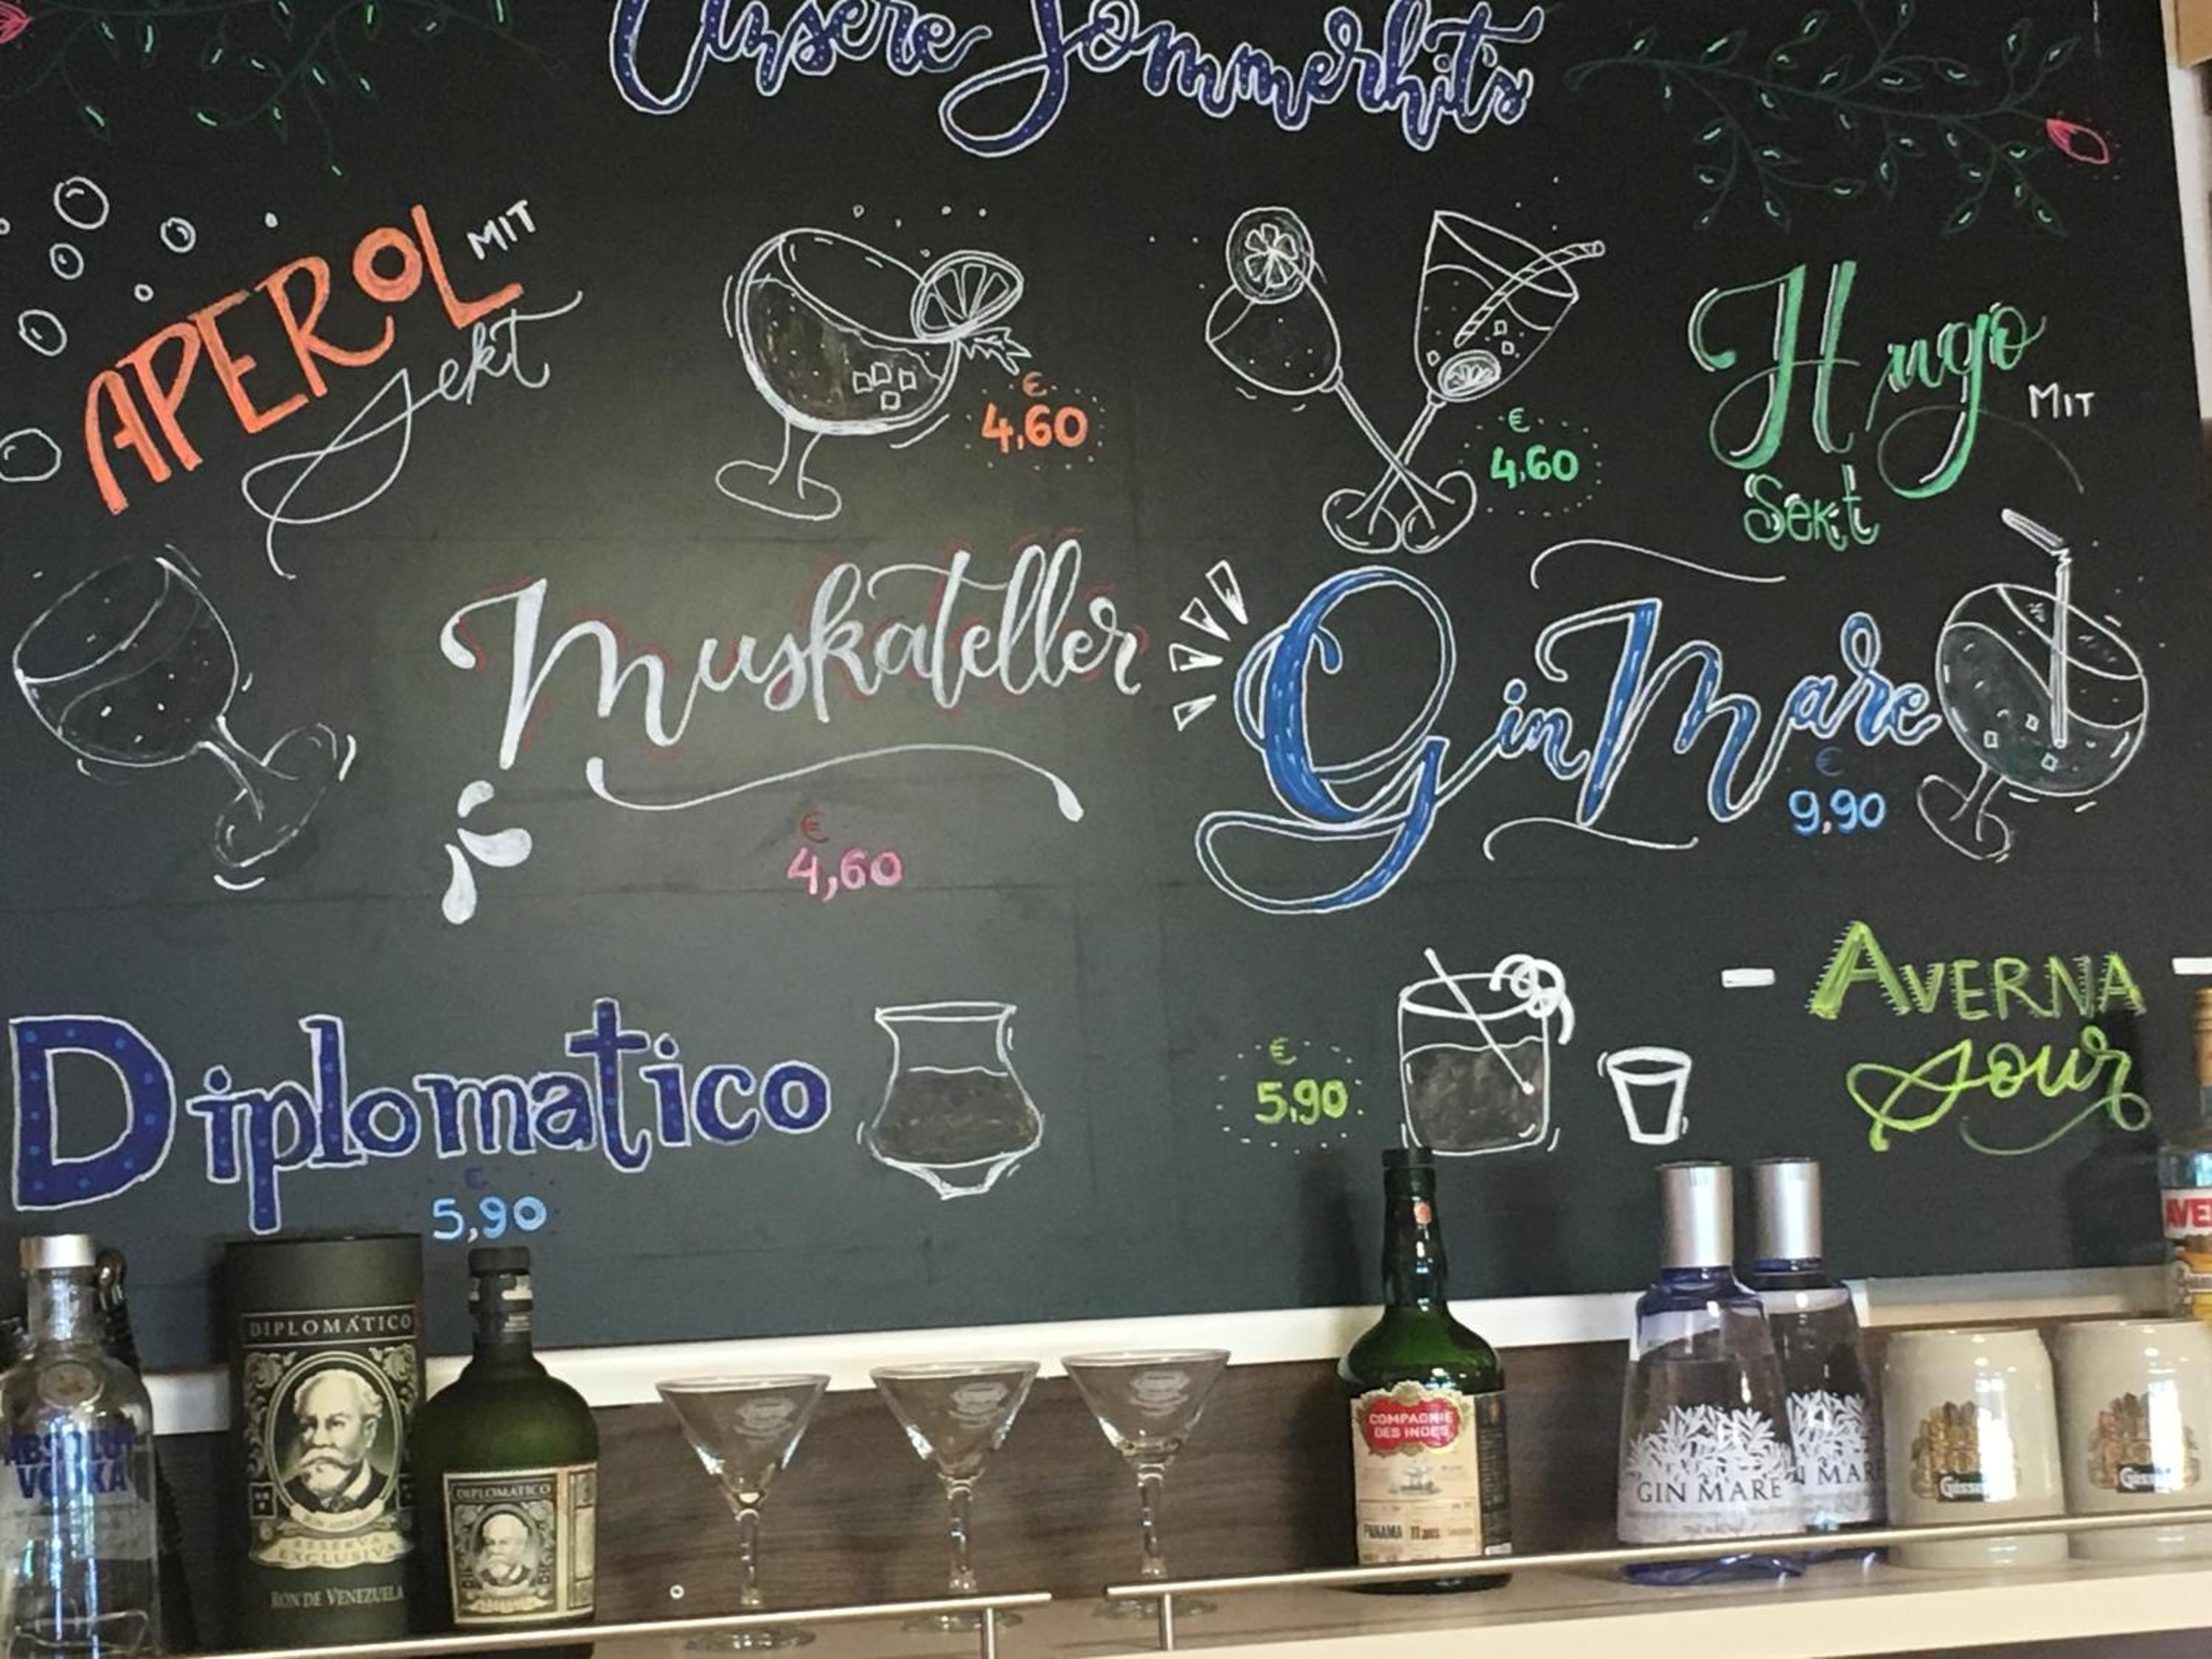 Unsere Sommerhit's
APEROL MIT
Sekt
€
4,60
€
4,60
Hugo
MIT
Sekt
Muskateller
€
4,60
Gin Mare
€
9,90
Diplomatico
€
5,90
€
5,90
AVERNA
Sour
ABSOLUT
VODKA
DIPLOMÁTICO
RESERVA
EXCLUSIVA
RON DE VENEZUELA
DIPLOMÁTICO
COMPAGNIE
DES INDES
PANAMA
GIN MARE
N MAR
Gösser
Gösser
AVE